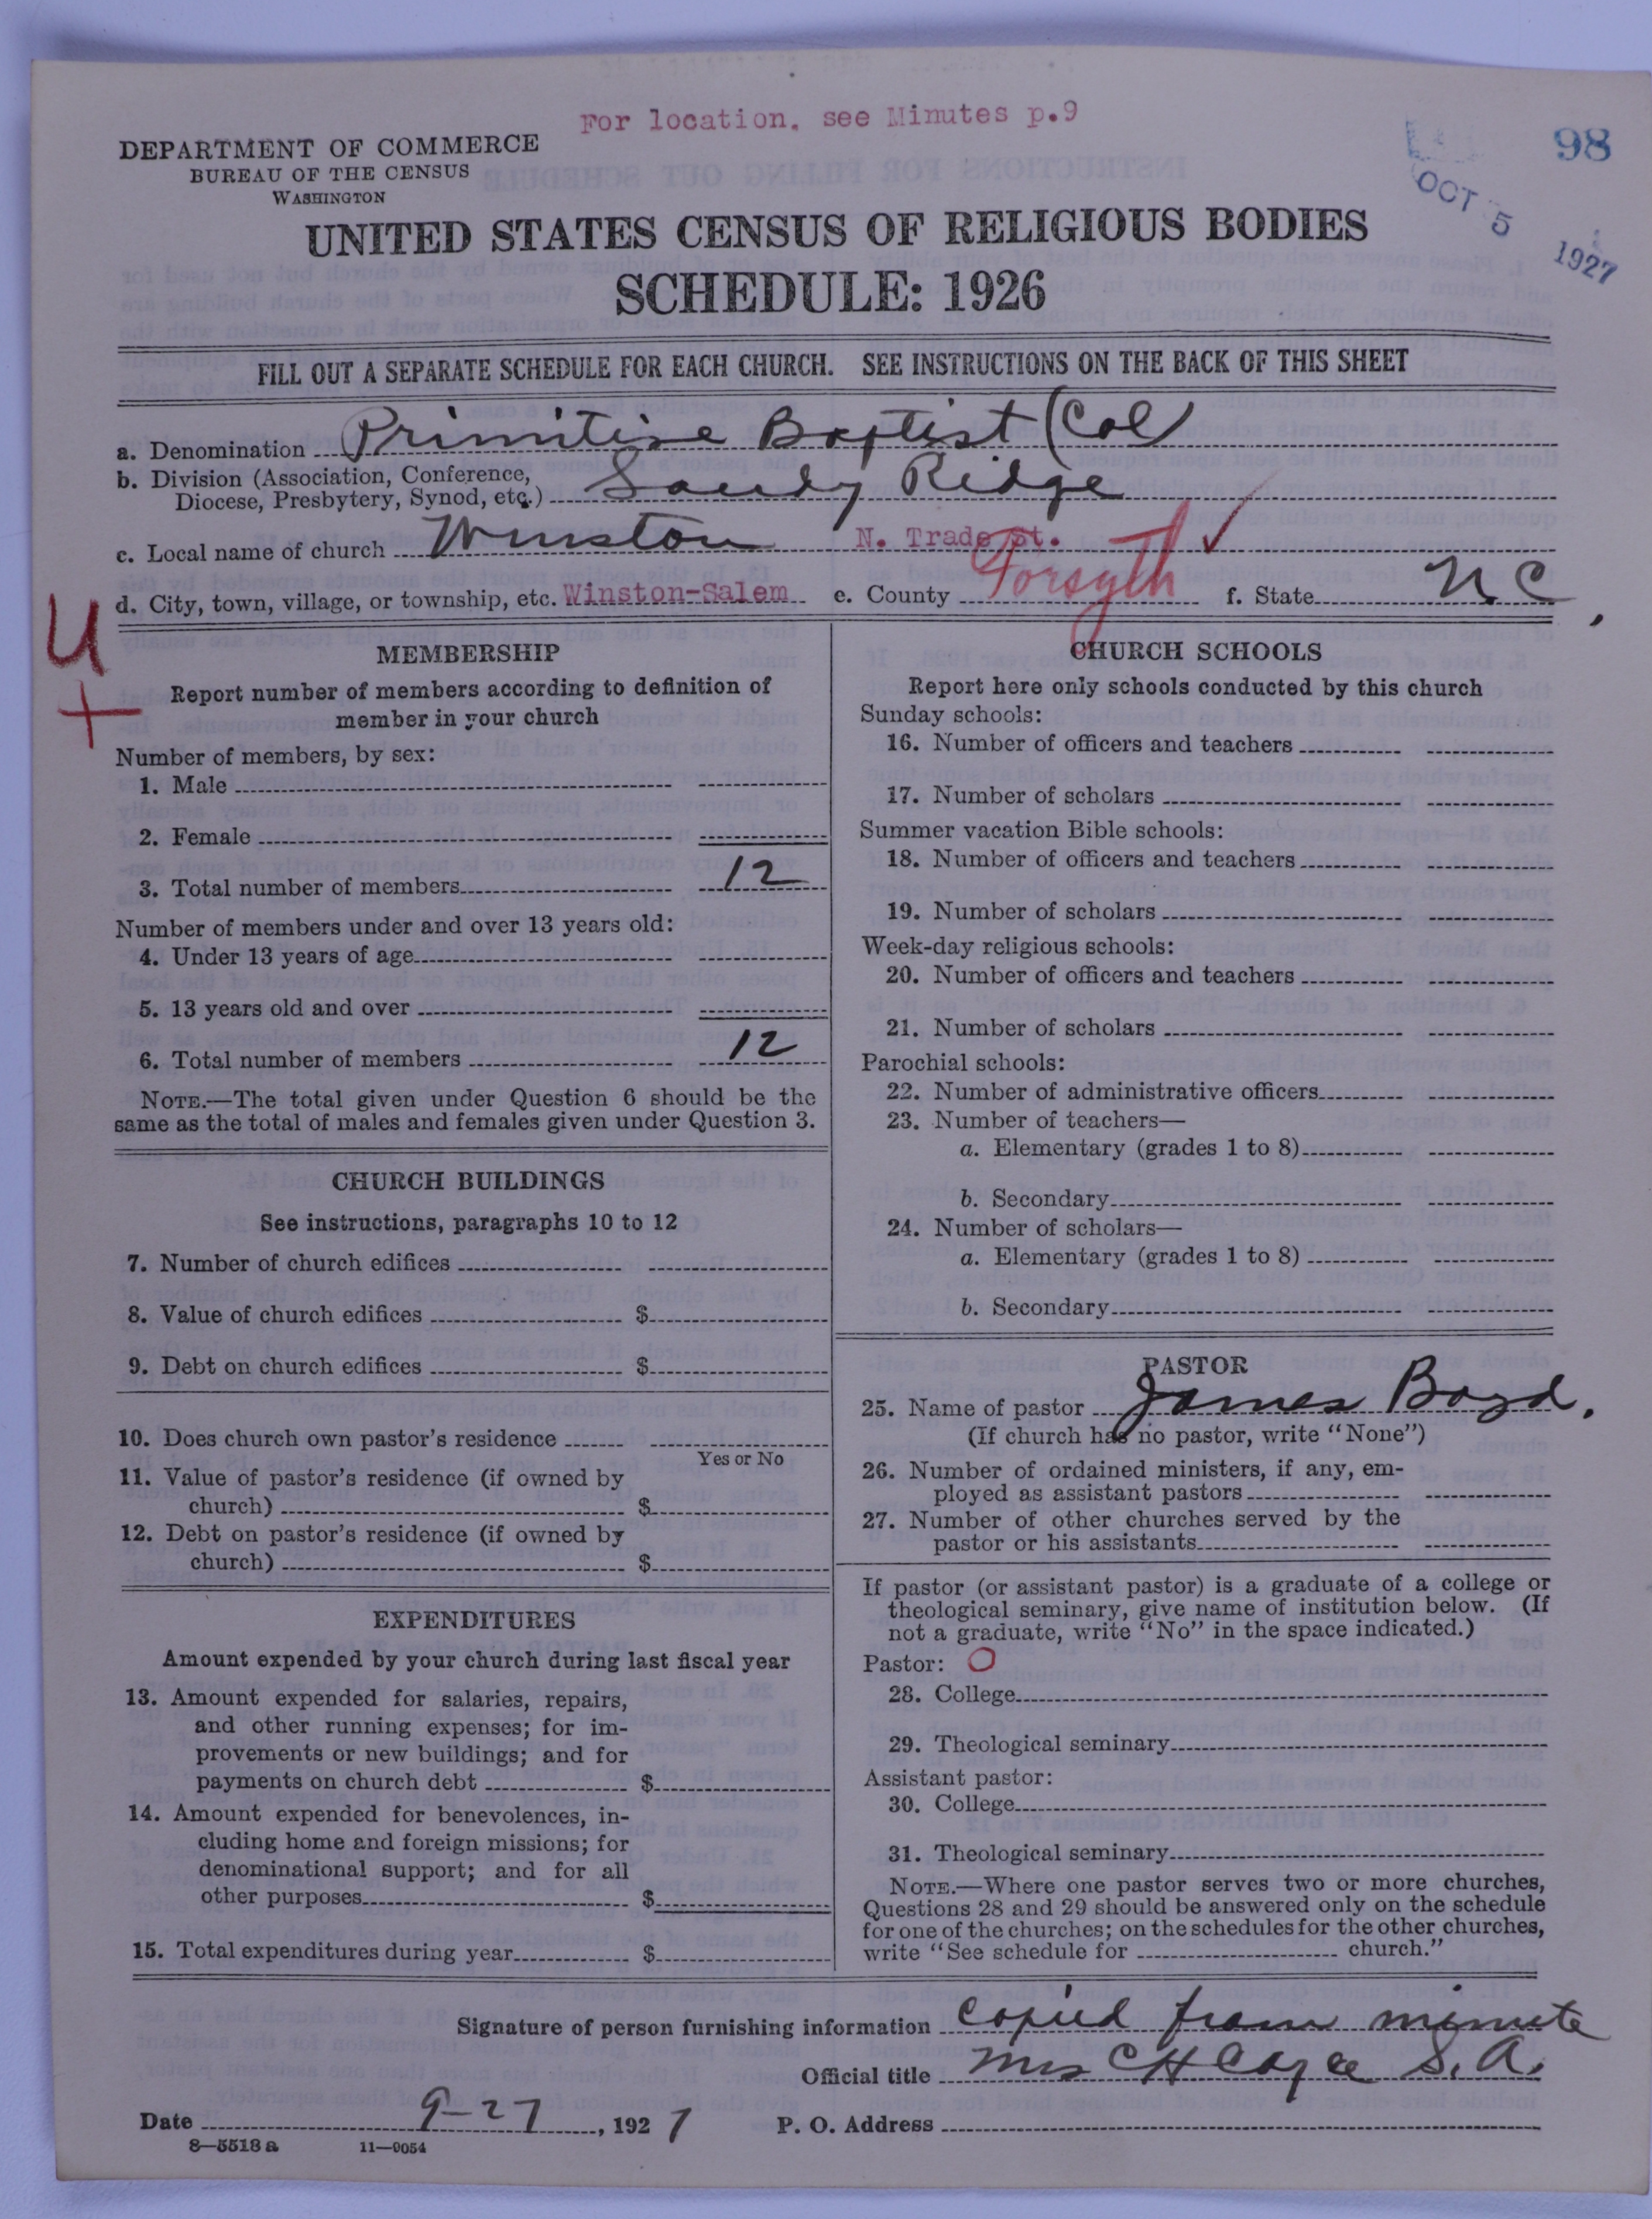 For location, see Minutes p.9
DEPARTMENT OF COMMERCE
BUREAU OF THE CENSUS
WASHINGTON
98
OCT 5 1927
UNITED STATES CENSUS OF RELIGIOUS BODIES
SCHEDULE: 1926
FILL OUT A SEPARATE SCHEDULE FOR EACH CHURCH. SEE INSTRUCTIONS ON THE BACK OF THIS SHEET
a. Denomination Primitive Baptist (Col)
b. Division (Association, Conference,
Diocese, Presbytery, Synod, etc.) Sandy Ridge
c. Local name of church Winston N. Trade St.
d. City, town, village, or township, etc. Winston-Salem e. County Forsyth f. State N C,
U
+
MEMBERSHIP
Report number of members according to definition of
member in your church
Number of members, by sex:
1. Male
2. Female
3. Total number of members 12
Number of members under and over 13 years old:
4. Under 13 years of age
5. 13 years old and over
6. Total number of members 12
NOTE.—The total given under Question 6 should be the
same as the total of males and females given under Question 3.
CHURCH BUILDINGS
See instructions, paragraphs 10 to 12
7. Number of church edifices
8. Value of church edifices $
9. Debt on church edifices $
10. Does church own pastor's residence
Yes or No
11. Value of pastor's residence (if owned by
church) $
12. Debt on pastor's residence (if owned by
church) $
EXPENDITURES
Amount expended by your church during last fiscal year
13. Amount expended for salaries, repairs,
and other running expenses; for im-
provements or new buildings; and for
payments on church debt $
14. Amount expended for benevolences, in-
cluding home and foreign missions; for
denominational support; and for all
other purposes $
15. Total expenditures during year $
CHURCH SCHOOLS
Report here only schools conducted by this church
Sunday schools:
16. Number of officers and teachers
17. Number of scholars
Summer vacation Bible schools:
18. Number of officers and teachers
19. Number of scholars
Week-day religious schools:
20. Number of officers and teachers
21. Number of scholars
Parochial schools:
22. Number of administrative officers
23. Number of teachers—
a. Elementary (grades 1 to 8)
b. Secondary
24. Number of scholars—
a. Elementary (grades 1 to 8)
b. Secondary
PASTOR
25. Name of pastor James Boyd.
(If church has no pastor, write "None")
26. Number of ordained ministers, if any, em-
ployed as assistant pastors
27. Number of other churches served by the
pastor or his assistants
If pastor (or assistant pastor) is a graduate of a college or
theological seminary, give name of institution below. (If
not a graduate, write "No" in the space indicated.)
Pastor: O
28. College
29. Theological seminary
Assistant pastor:
30. College
31. Theological seminary
NOTE.—Where one pastor serves two or more churches,
Questions 28 and 29 should be answered only on the schedule
for one of the churches; on the schedules for the other churches,
write "See schedule for church."
Signature of person furnishing information copied from minute
Official title Mrs C H Cayce S. A.
Date 9-27, 1927 P. O. Address
8—5518 a 11—9054